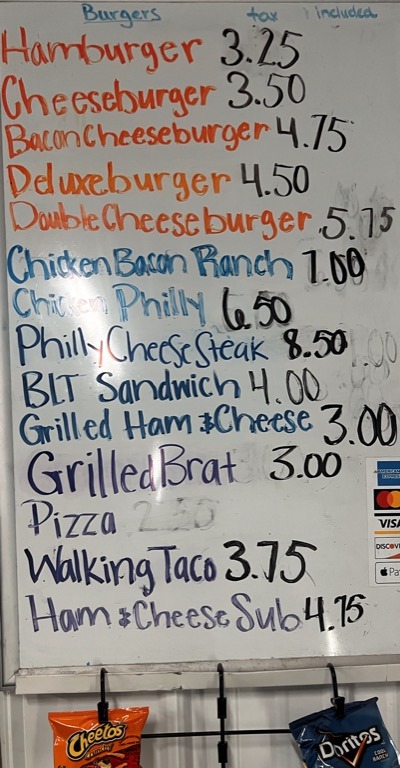 Burgers tax included
Hamburger 3.25
Cheeseburger 3.50
Bacon Cheeseburger 4.75
Deluxeburger 4.50
Double Cheeseburger 5.75
Chicken Bacon Ranch 7.00
Chicken Philly 6.50
Philly Cheese Steak 8.50
BLT Sandwich 4.00
Grilled Ham & Cheese 3.00
Grilled Brat 3.00
Pizza 2.50
Walking Taco 3.75
Ham & Cheese Sub 4.75
AMERICAN EXPRESS
VISA
DISCOVER
Pay
Cheetos
Doritos
COOL RANCH